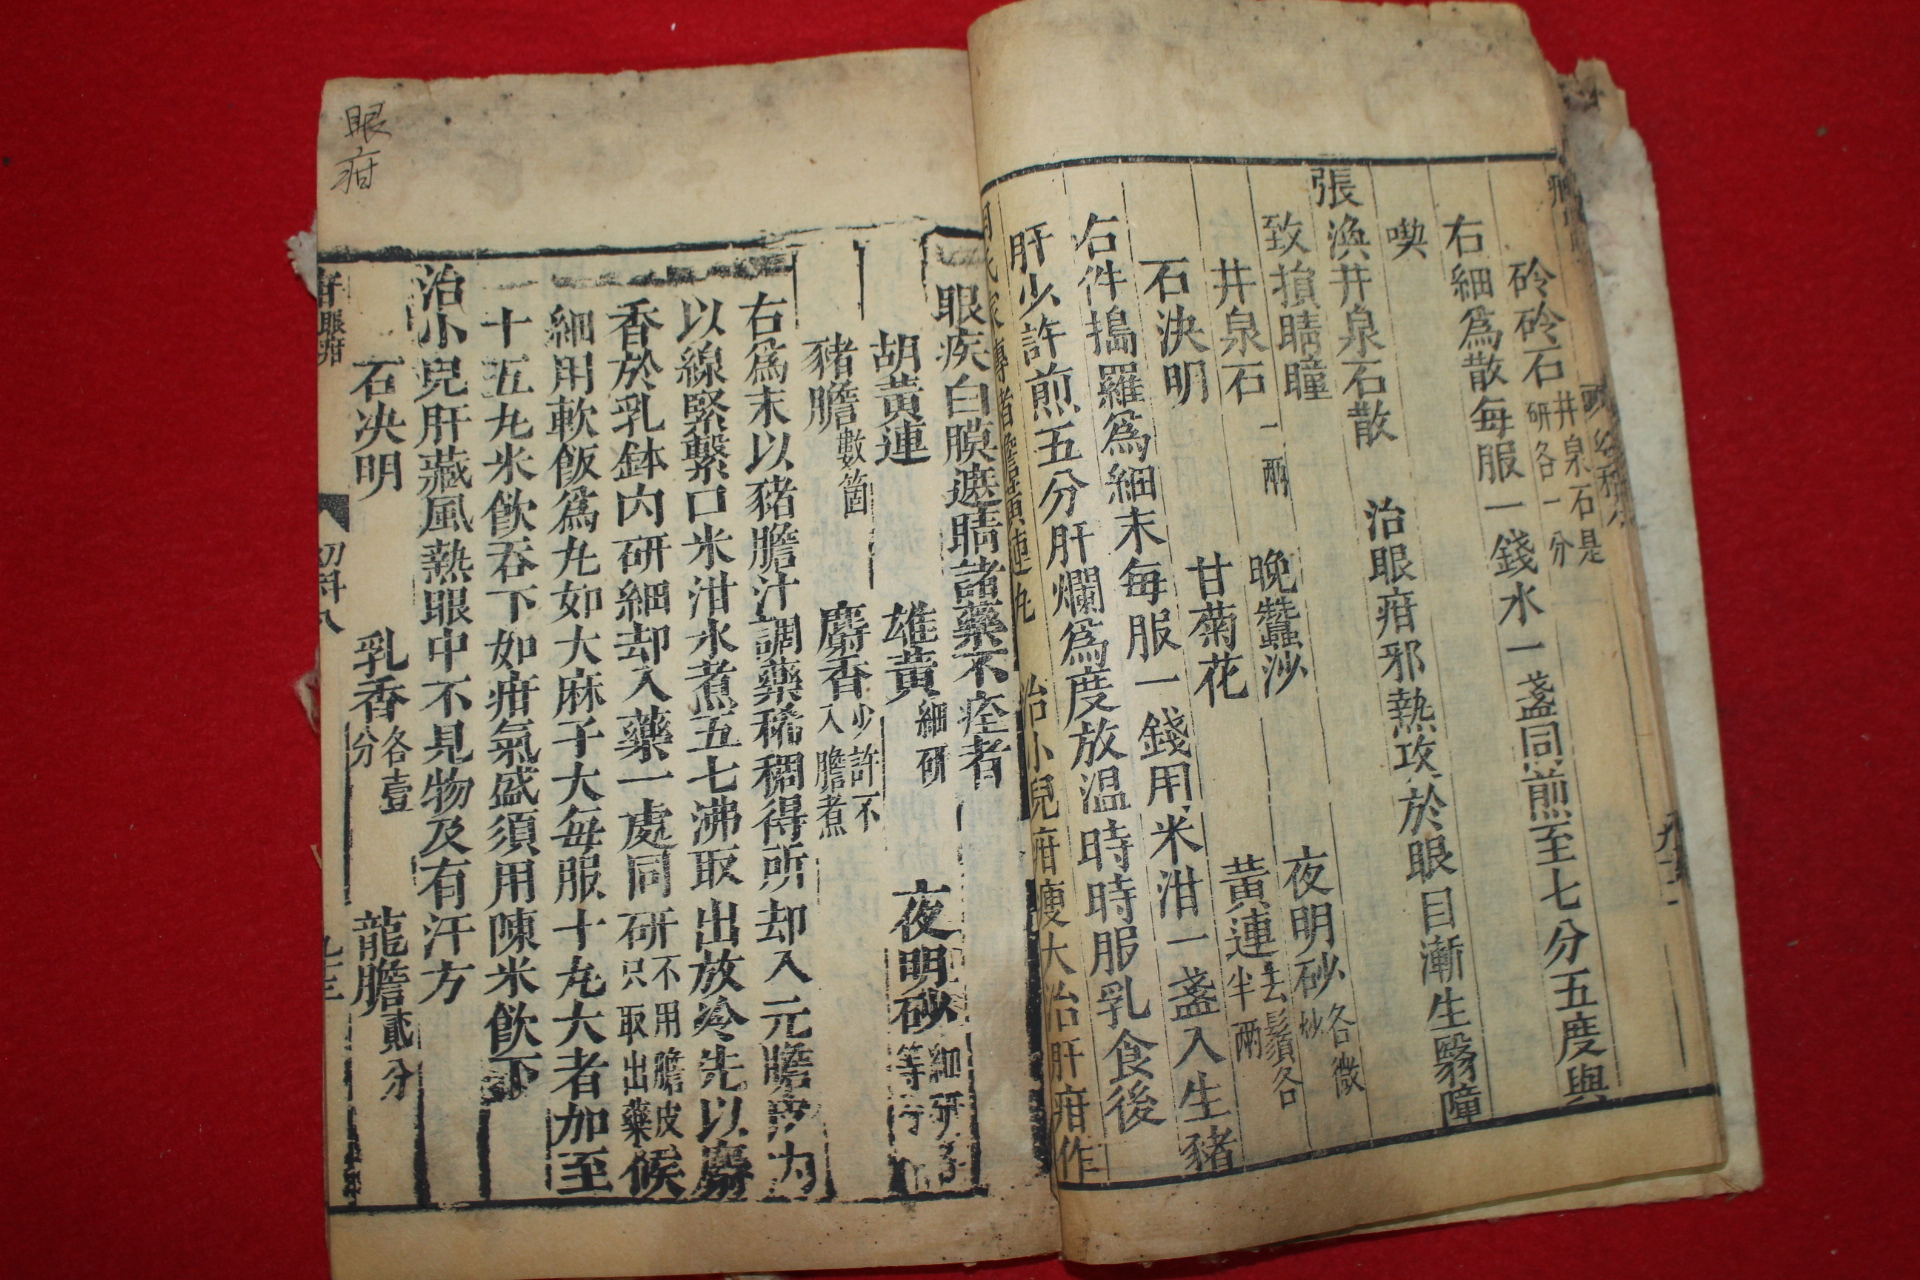 砱砱石井泉石是研各一分
右細為散每服一錢水一盞同煎至七分五度與
喫
張渙井泉石散　治眼疳邪熱攻於眼目漸生翳障
致損睛瞳
井泉石一兩　晚蠶沙　夜明砂各微炒
石決明　甘菊花　黃連去鬚各半兩
右件搗羅為細末每服一錢用米泔一盞入生豬
肝少許煎五分肝爛為度放温時時服乳食後
治小兒疳瘦大治肝疳作
眼疾白膜遮睛諸藥不痊者
胡黃連　雄黃細研　夜明砂細研
豬膽數箇　麝香少許不入膽煮
右為末以豬膽汁調藥稀稠得所却入元膽皮内
以線緊繫口米泔水煮五七沸取出放冷先以麝
香於乳鉢内研細却入藥一處同研不用膽皮只取出藥候
細用軟飯為丸如大麻子大每服十丸大者加至
十五丸米飲吞下如疳氣盛須用陳米飲下
治小兒肝藏風熱眼中不見物及有汗方
石決明　乳香各壹分　龍膽貳分
眼疳
眼疳
幼科八
九三